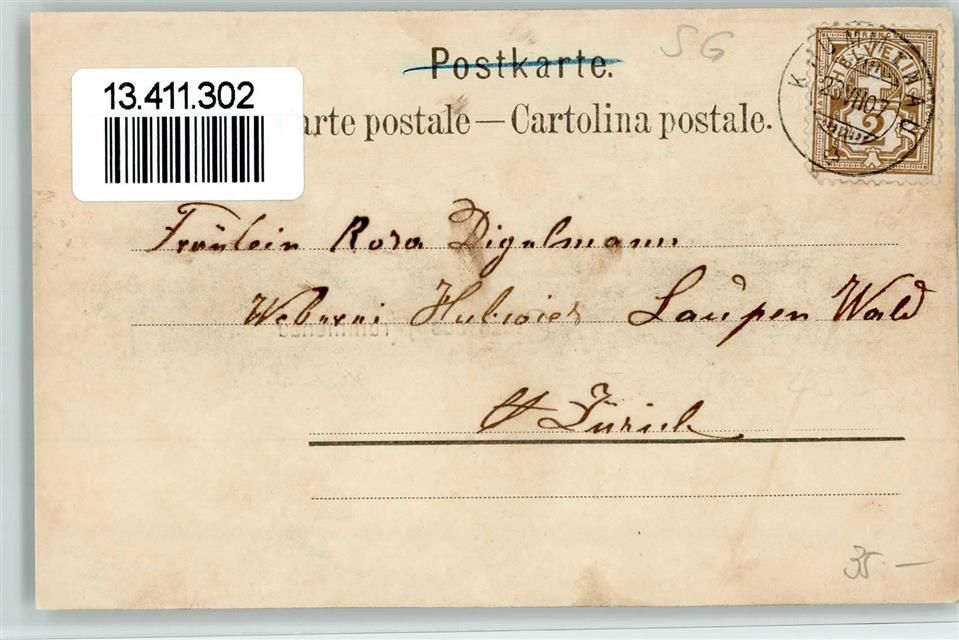 SG
Postkarte.
13.411.302
arte postale — Cartolina postale.
HELVETIA
2
Fräulein Rosa Digelmann
Weberei Hubwies Laupen Wald
Kt Zürich
35.—